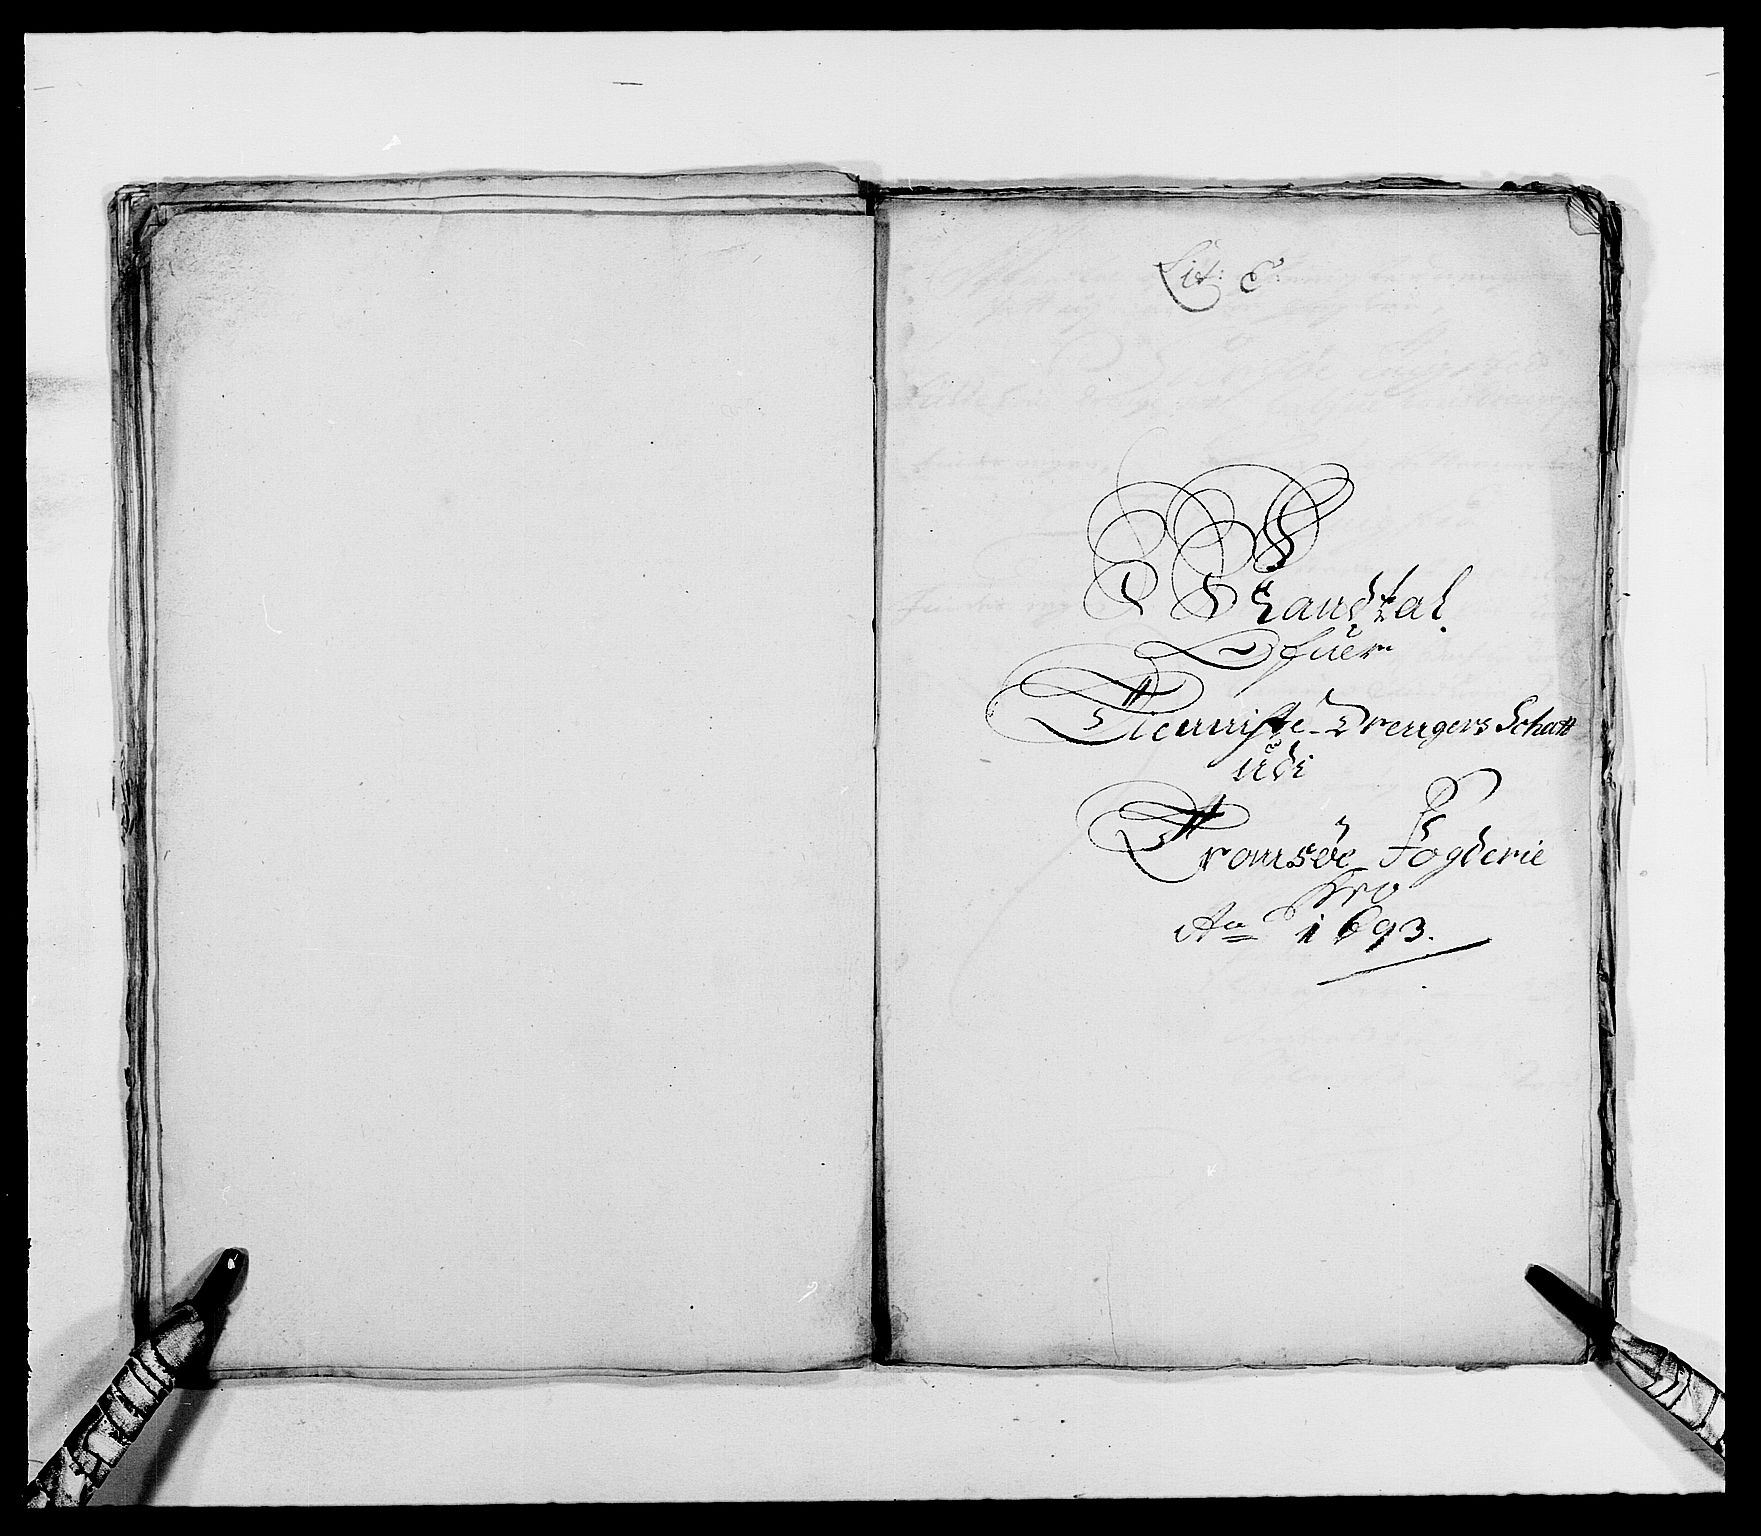 Lit: C
Mandtal
Ofuer
Tienniste-Drengers Schatt
udi
Tromsøe Fogderie
Pro
Ao 1693.